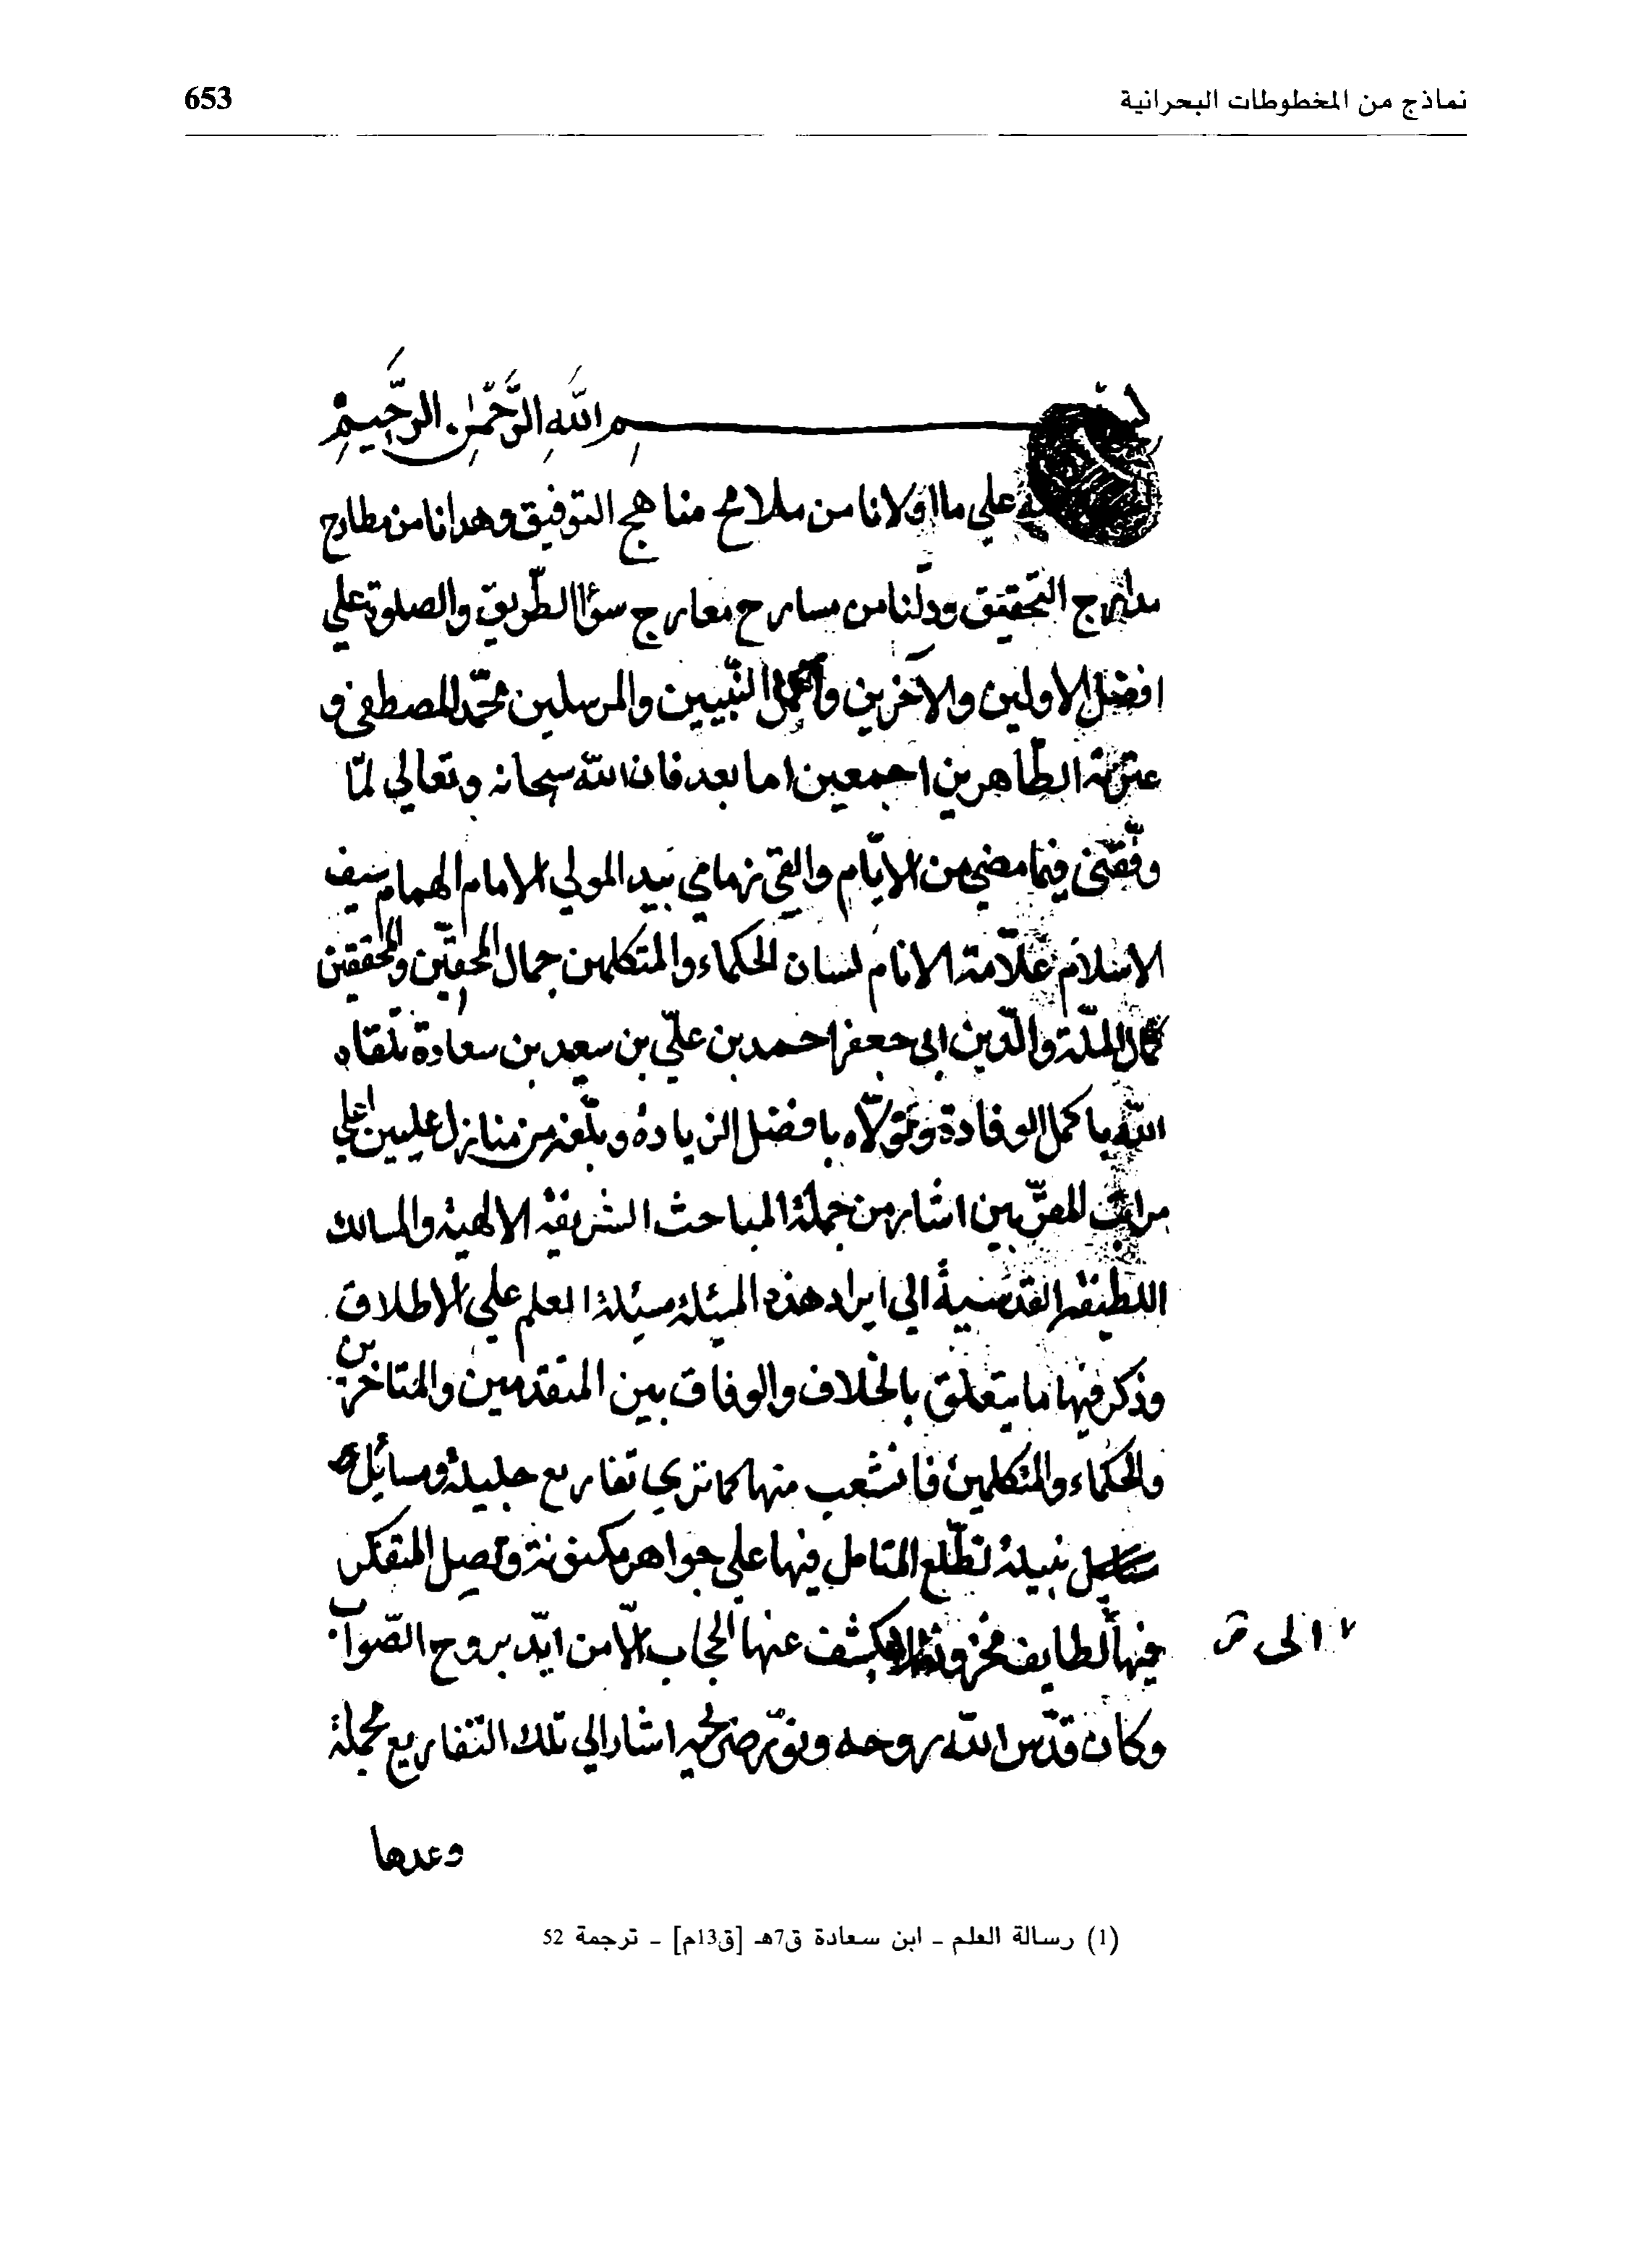 نماذج من المخطوطات البحرانية
653
بسم الله الرحمن الرحيم
على ما اولانا من ملامح مناهج التوفيق وهدانا من مطارح
مدارج التحقيق ودلنا من مسارح معارج سؤا الطريق والصلوة على
افضل الاولين والآخرين وأكمل النبيين والمرسلين محمد المصطفى و
عترته الطاهرين اجمعين اما بعد فان الله سبحانه وتعالى لمّا
وفقني فيما مضى من الايّام والقى زمامي بيد المولى الامام الهمام سيف
الاسلام علّامة الانام لسان الحكماء والمتكلمين جمال المحقّين والمحققين
كمال الملّة والدّين ابى جعفر احمد بن علّي بن سعيد بن سعادة تلقاه
الله باكمل الوفادة وتولّاه بافضل الزيادة وبلّغه من منازل عليين اعلى
مراتب المقرّبين اشار من جملة المباحث الشريفة الالهية والمسالك
اللطيفة القدسية الى ايراد هذه المسئلة مسئلة العلم على الاطلاق
وذكر فيها ما يتعلق بالخلاف والوفاق بين المتقدمين والمتاخرين
والحكماء والمتكلمين فانشعب منها كما ترى تفاريع جليلة ومسائل
نبيلة تطّلع المتامل فيها على جواهر مكنونة وتصل المتفكر
فيها الى لطايف مخزونة لا يكشف عنها الحجاب الّا من ايّد بروح الصّواب
وكان قدّس الله روحه ونوّر ضريحه اشار الى تلك التفاريع مجملة
وعدها
(1) رسالة العلم - ابن سعادة ق7هـ [ق13م] - ترجمة 52